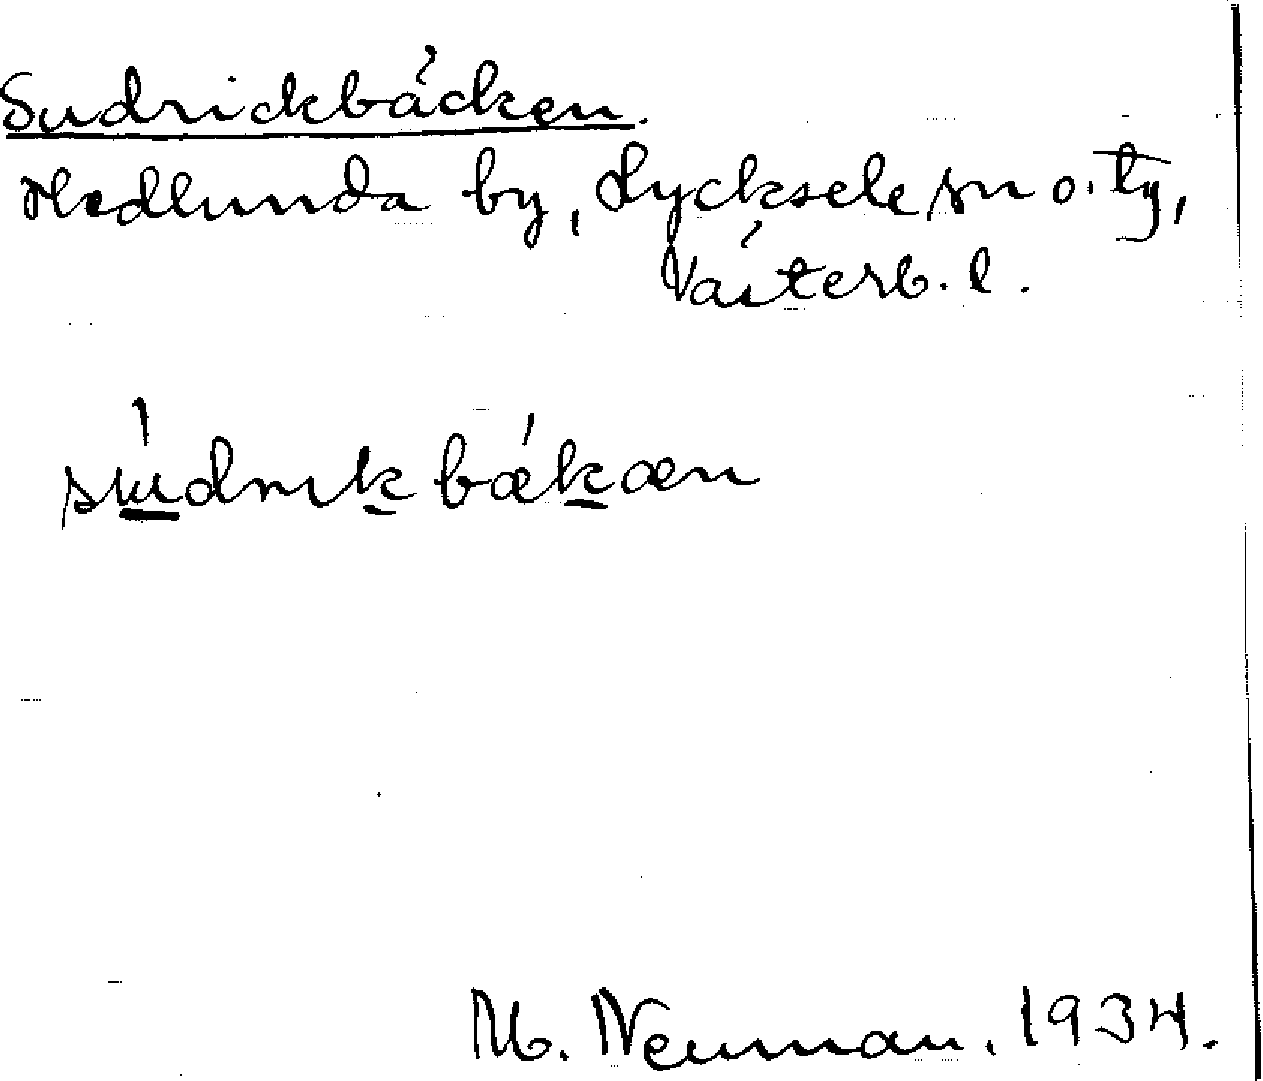 Sudrickbäcken.
Hedlunda by, Lycksele sn o. tg,
Västerb. l.
súdrɩkbækæn
M. Neuman. 1934.